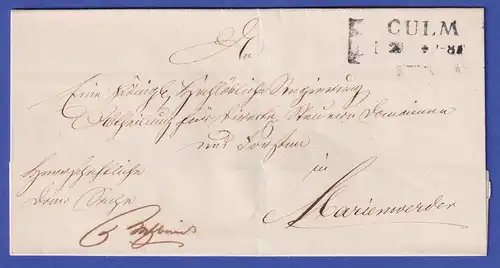 CULM
An
Eine Königl. Hochlöbliche Regierung
Abtheilung für directe Steuern Domainen
und Forsten
in
Marienwerder
Herrschaftliche
Doms Sache